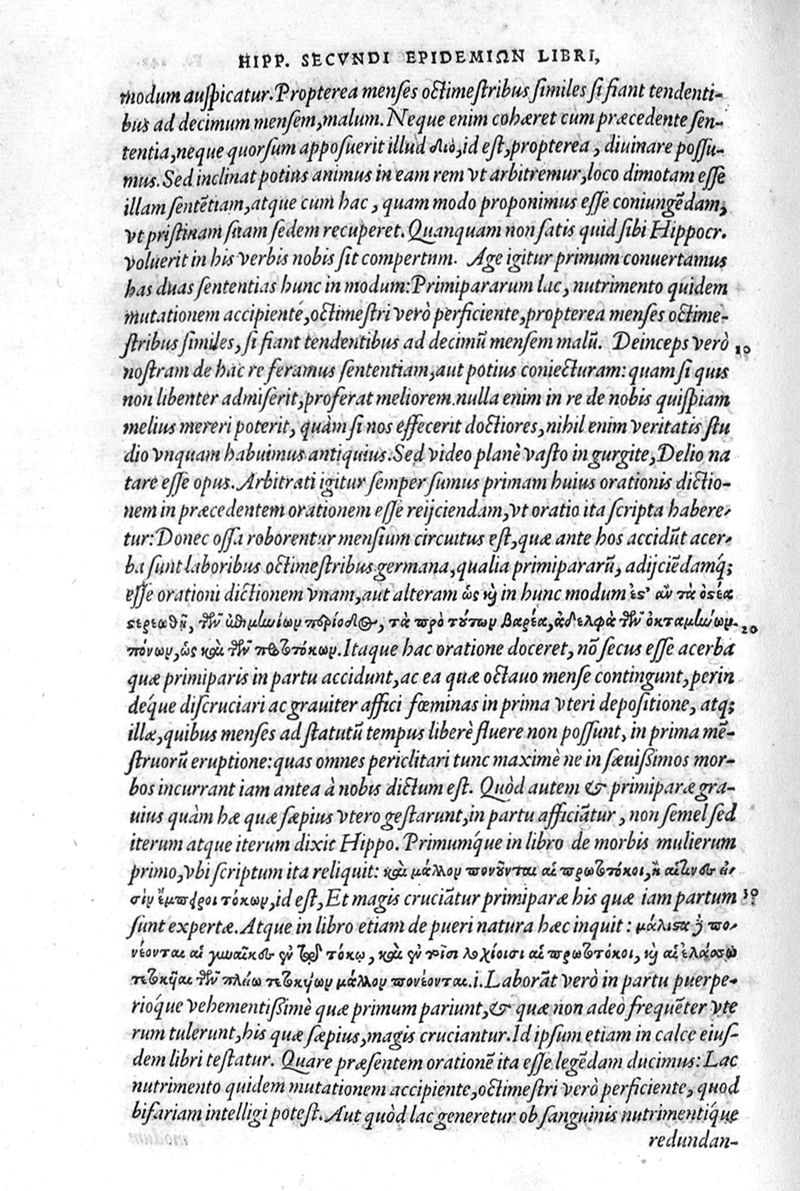 HIPP. SECVNDI EPIDEMIΩN LIBRI,
modum auſpicatur. Propterea menſes octimeſtribus ſimiles ſi fiant tendenti-
bus ad decimum menſem, malum. Neque enim cohæret cum præcedente ſen-
tentia, neque quorſum appoſuerit illud διὸ, id eſt, propterea, diuinare poſſu-
mus. Sed inclinat potius animus in eam rem vt arbitremur, loco dimotam eſſe
illam ſentētiam, atque cum hac, quam modo proponimus eſſe coniungēdam,
vt priſtinam ſuam ſedem recuperet. Quanquam non ſatis quid ſibi Hippocr.
voluerit in his verbis nobis ſit compertum. Age igitur primum conuertamus
has duas ſententias hunc in modum: Primipararum lac, nutrimento quidem
mutationem accipiente, octimeſtri verò perficiente, propterea menſes octime-
ſtribus ſimiles, ſi fiant tendentibus ad decimū menſem malū. Deinceps verò 10
noſtram de hac re feramus ſententiam, aut potius coniecturam: quam ſi quis
non libenter admiſerit, proferat meliorem. nulla enim in re de nobis quiſpiam
melius mereri poterit, quàm ſi nos effecerit doctiores, nihil enim veritatis ſtu
dio vnquam habuimus antiquius. Sed video planè vaſto in gurgite, Delio na
tare eſſe opus. Arbitrati igitur ſemper ſumus primam huius orationis dictio-
nem in præcedentem orationem eſſe reijciendam, vt oratio ita ſcripta habere-
tur: Donec oſſa roborentur menſium circuitus eſt, quæ ante hos accidūt acer-
ba ſunt laboribus octimeſtribus germana, qualia primipararū, adijciēdamq;
eſſe orationi dictionem vnam, aut alteram ὡς καὶ in hunc modum ἔς' ἂν τὰ ὀστέα
στερεωθῇ, τῶν ἐπιμηνίων περίοδος, τὰ πρὸ τούτων βαρέα, ἀδελφὰ τῶν ὀκταμήνων 20
πόνων, ὡς καὶ τῶν πρωτοτόκων. Itaque hac oratione doceret, nō ſecus eſſe acerba
quæ primiparis in partu accidunt, ac ea quæ octauo menſe contingunt, perin
déque diſcruciari ac grauiter affici fœminas in prima vteri depoſitione, atq;
illæ, quibus menſes ad ſtatutū tempus liberè fluere non poſſunt, in prima mē-
ſtruorū eruptione: quas omnes periclitari tunc maximè ne in ſæuißimos mor-
bos incurrant iam antea à nobis dictum eſt. Quòd autem & primiparæ gra-
uius quàm hæ quæ ſæpius vtero geſtarunt, in partu afficiātur, non ſemel ſed
iterum atque iterum dixit Hippo. Primumq́ue in libro de morbis mulierum
primo, vbi ſcriptum ita reliquit: καὶ μᾶλλον πονοῦνται αἱ πρωτοτόκοι, ἢ
ἔμπειροι τόκων, id eſt, Et magis cruciātur primiparæ his quæ iam partum 30
ſunt expertæ. Atque in libro etiam de pueri natura hæc inquit: μάλιστα δὲ πο-
νέονται αἱ γυναῖκες ἐν τῷ τόκῳ, καὶ ἐν τοῖσι λοχίοισι αἱ πρωτοτόκοι, καὶ αἱ ἐλάσσω
τετοκυῖαι τῶν πλείω τετοκυιῶν μᾶλλον πονέονται. i. Laborāt verò in partu puerpe-
rioq́ue vehementißimè quæ primum pariunt, & quæ non adeò frequēter vte
rum tulerunt, his quæ ſæpius, magis cruciantur. Id ipſum etiam in calce eiuſ-
dem libri teſtatur. Quare præſentem orationē ita eſſe legēdam ducimus: Lac
nutrimento quidem mutationem accipiente, octimeſtri verò perficiente, quod
bifariam intelligi poteſt. Aut quòd lac generetur ob ſanguinis nutrimentiq́ue
redundan-